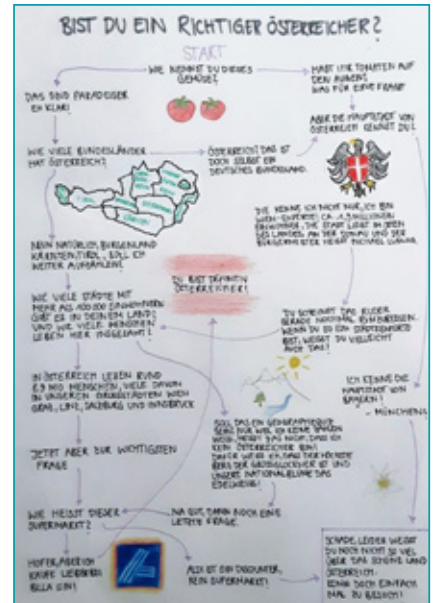 BIST DU EIN RICHTIGER ÖSTERREICHER?
START
WIE NENNST DU DIESES
GEMÜSE?
HABT IHR TOMATEN AUF
DEN AUGEN?
WAS FÜR EINE FRAGE
DAS SIND PARADEISER
EH KLAR!
ABER DIE HAUPTSTADT VON
ÖSTERREICH KENNST DU?
WIE VIELE BUNDESLÄNDER
HAT ÖSTERREICH?
ÖSTERREICH? DAS IST
DOCH SELBST EIN
DEUTSCHES BUNDESLAND.
DIE KENNE ICH NICHT NUR, ICH BIN
WIEN-EXPERTE! CA. 1,9 MILLIONEN
EINWOHNER, DIE STADT LIEGT IM OSTEN
DES LANDES, AN DER DONAU UND DER
BÜRGERMEISTER HEISST MICHAEL LUDWIG.
NEUN NATÜRLICH, BURGENLAND
KÄRNTEN, TIROL, SOLL ICH
WEITER AUFZÄHLEN?
DU BIST DEFINITIV
ÖSTERREICHER!
WIE VIELE STÄDTE MIT
MEHR ALS 100.000 EINWOHNERN
GIBT ES IN DEINEM LAND?
UND WIE VIELE MENSCHEN
LEBEN HIER INSGESAMT?
DU SCHEINST DAS RUDER
GERADE NOCHMAL
WENN DU SO EIN STÄDTEEXPERTE
BIST, WEISST DU VIELLEICHT
AUCH DAS?
IN ÖSTERREICH LEBEN RUND
8,9 MIO MENSCHEN, VIELE DAVON
IN UNSEREN GROSSSTÄDTEN WIEN
GRAZ, LINZ, SALZBURG UND INNSBRUCK
ICH KENNE DIE
HAUPTSTADT VON
BAYERN!
- MÜNCHEN
SOLL DAS EIN GEOGRAPHIEQUIZ
SEIN? NUR WEIL ICH KEINE ZAHLEN
WEISS, HEISST DAS NICHT, DASS ICH
KEIN ÖSTERREICHER BIN!
DAFÜR WEISS ICH, DASS DER HÖCHSTE
BERG DER GROSSGLOCKNER IST UND
UNSERE NATIONALBLUME DAS
EDELWEISS!
JETZT ABER ZUR WICHTIGSTEN
FRAGE
WIE HEISST DIESER
SUPERMARKT?
NA GUT, DANN NOCH EINE
LETZTE FRAGE.
HOFER, ABER ICH
KAUFE LIEBER BEI
BILLA EIN!
ALDI IST EIN DISCOUNTER,
KEIN SUPERMARKT!
SCHADE, LEIDER WEISST
DU NOCH NICHT SO VIEL
ÜBER DAS SCHÖNE LAND
ÖSTERREICH.
KOMM DOCH EINFACH
MAL ZU BESUCH!